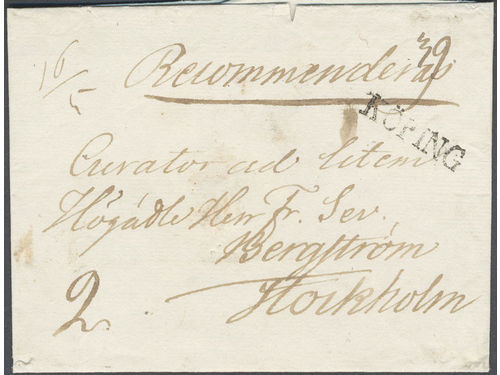 16/5
Recommenderas
39
KÖPING
Curator ad litem
Högädle Herr Fr. Sev.
Bergström
Stockholm
2.